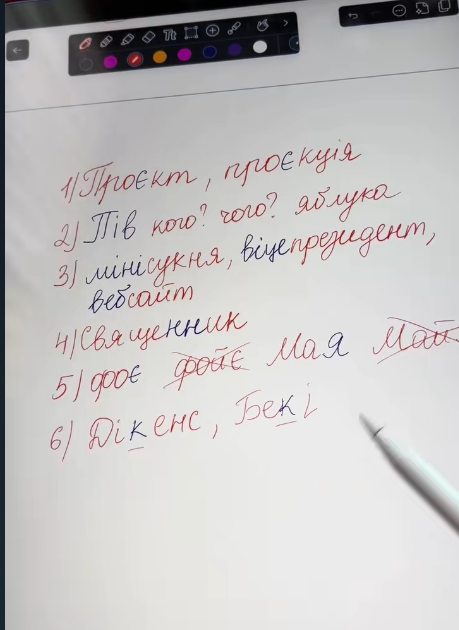 1) Проєкт, проєкція
2) Пів кого? чого? яблука
3) мінісукня, віцепрезидент,
вебсайт
4) Священник
5) фоє фойє Мая Май
6) Дікенс, Бекі